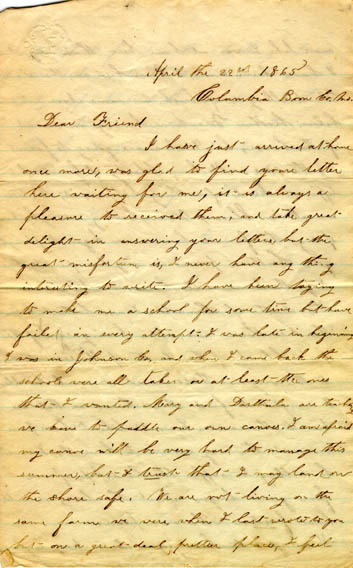 April the 22nd 1865
Columbia Boon Co, Mo.
Dear Friend
I have just arrived at home
once more, was glad to find youre letter
here waiting for me, it is always a
pleasure to received them, and take great
delight in answering your letters, but the
great misfortune is, I never have any thing
interesting to write. I have been trying
to make me a school for some time but have
failed in every attempt. I was late in begining
I was in Johnson Co, and when I came back the
schools were all taken or at least the ones
that I wanted. Mary and are
we have to paddle our own canoes. I am afraid
my canoe will be very hard to manage this
summer, but I trust that I may land on
the shore safe. We are not living on the
same farm we were, when I last wrote to you
but on a great deal prettier place, I feel